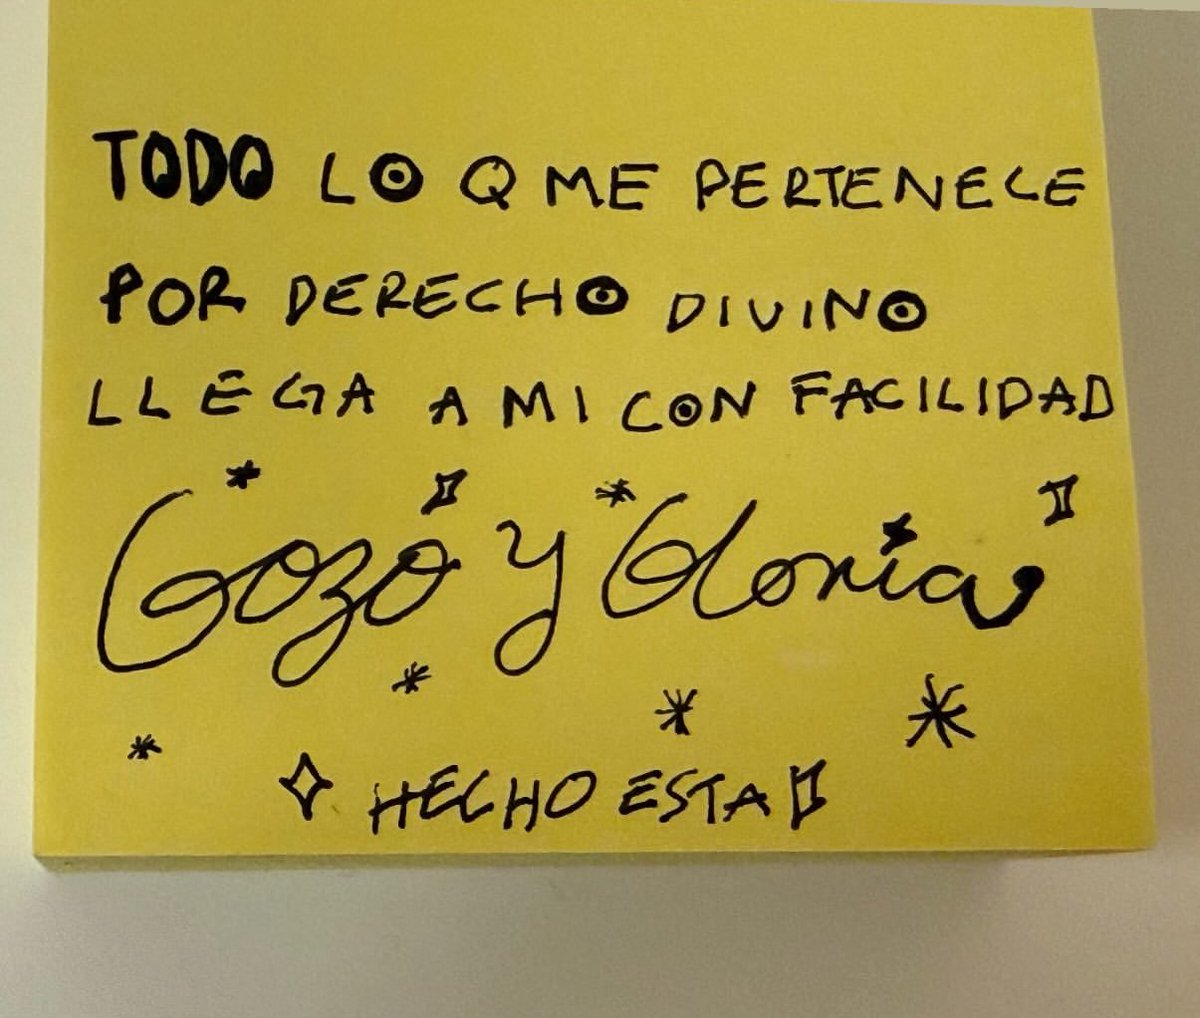 TODO LO Q ME PERTENECE
POR DERECHO DIVINO
LLEGA A MI CON FACILIDAD
Gozo y Gloria
HECHO ESTA